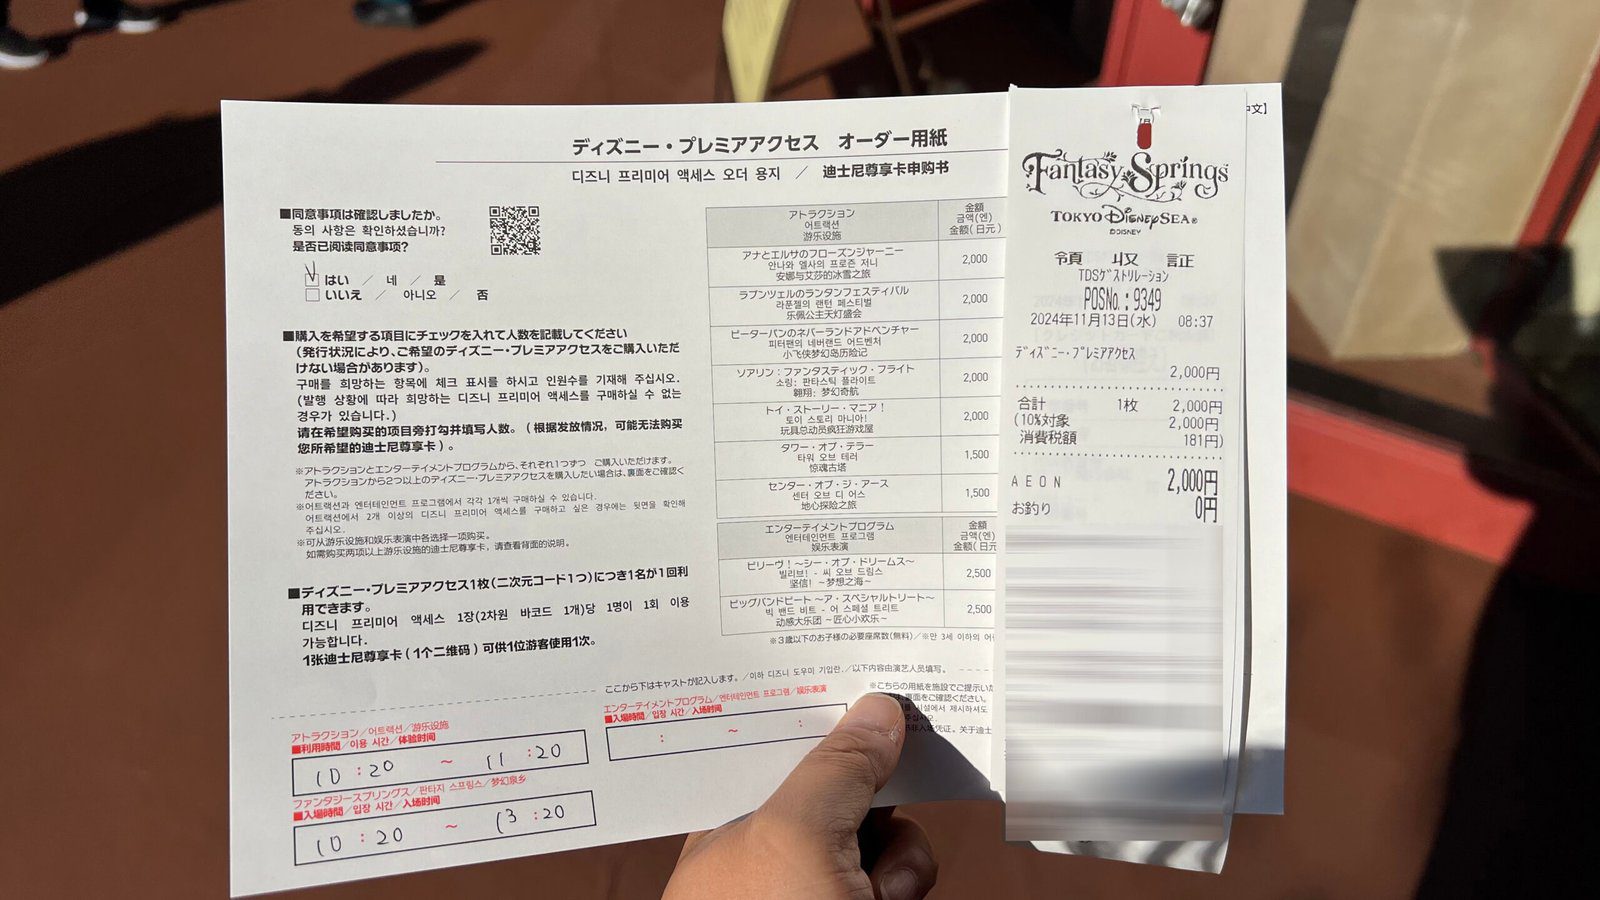 ディズニー・プレミアアクセス　オーダー用紙
디즈니 프리미어 액세스 오더 용지 ／ 迪士尼尊享卡申购书
■同意事項は確認しましたか。
동의 사항은 확인하셨습니까?
是否已阅读同意事项?
はい ／ 네 ／ 是
いいえ ／ 아니오 ／ 否
■購入を希望する項目にチェックを入れて人数を記載してください
(発行状況により、ご希望のディズニー・プレミアアクセスをご購入いただ
けない場合があります)。
구매를 희망하는 항목에 체크 표시를 하시고 인원수를 기재해 주십시오.
(발행 상황에 따라 희망하는 디즈니 프리미어 액세스를 구매하실 수 없는
경우가 있습니다.)
请在希望购买的项目旁打勾并填写人数。(根据发放情况，可能无法购买
您所希望的迪士尼尊享卡)。
※アトラクションとエンターテイメントプログラムから、それぞれ1つずつ ご購入いただけます。
アトラクションから2つ以上のディズニー・プレミアアクセスを購入したい場合は、裏面をご確認く
ださい。
※어트랙션과 엔터테인먼트 프로그램에서 각각 1개씩 구매하실 수 있습니다.
어트랙션에서 2개 이상의 디즈니 프리미어 액세스를 구매하고 싶은 경우에는 뒷면을 확인해
주십시오.
※可从游乐设施和娱乐表演中各选择一项购买。
如需购买两项以上游乐设施的迪士尼尊享卡，请查看背面的说明。
■ディズニー・プレミアアクセス1枚(二次元コード1つ)につき1名が1回利
用できます。
디즈니 프리미어 액세스 1장(2차원 바코드 1개)당 1명이 1회 이용
가능합니다.
1张迪士尼尊享卡(1个二维码)可供1位游客使用1次。
アトラクション
어트랙션
游乐设施
金額
금액(엔)
金额(日元)
アナとエルサのフローズンジャーニー
안나와 엘사의 프로즌 저니
安娜与艾莎的冰雪之旅
2,000
ラプンツェルのランタンフェスティバル
라푼젤의 랜턴 페스티벌
乐佩公主天灯盛会
2,000
ピーターパンのネバーランドアドベンチャー
피터팬의 네버랜드 어드벤처
小飞侠梦幻岛历险记
2,000
ソアリン：ファンタスティック・フライト
소링: 판타스틱 플라이트
翱翔：梦幻奇航
2,000
トイ・ストーリー・マニア！
토이 스토리 마니아!
玩具总动员疯狂游戏屋
2,000
タワー・オブ・テラー
타워 오브 테러
惊魂古塔
1,500
センター・オブ・ジ・アース
센터 오브 디 어스
地心探险之旅
1,500
エンターテイメントプログラム
엔터테인먼트 프로그램
娱乐表演
金額
금액(엔)
金额(日元
ビリーヴ！～シー・オブ・ドリームス～
빌리브! - 씨 오브 드림스
坚信！～梦想之海～
2,500
ビッグバンドビート ～ア・スペシャルトリート～
빅 밴드 비트 - 어 스페셜 트리트
动感大乐团 ～匠心小欢乐～
2,500
※3歳以下のお子様の必要座席数(無料)／※만 3세 이하의 어린
ここから下はキャストが記入します。／이하 디즈니 도우미 기입란.／以下内容由演艺人员填写。
アトラクション／어트랙션／游乐设施
■利用時間／이용 시간／体验时间
10 : 20 ～ 11 : 20
ファンタジースプリングス／판타지 스프링스／梦幻泉乡
■入場時間／입장 시간／入场时间
10 : 20 ～ 13 : 20
エンターテイメントプログラム／엔터테인먼트 프로그램／娱乐表演
■入場時間／입장 시간／入场时间
: ～ :
※こちらの用紙を施設でご提示いた
裏面をご確認ください。
시설에서 제시하셔도
주십시오.
非入场凭证。关于迪士
中文】
Fantasy Springs
TOKYO DISNEYSEA®
©DISNEY
領 収 証
TDSゲストリレーション
POSNo.:9349
2024年11月13日(水) 08:37
ディズニー・プレミアアクセス
2,000円
合計 1枚 2,000円
(10%対象 2,000円
消費税額 181円)
AEON 2,000円
お釣り 0円